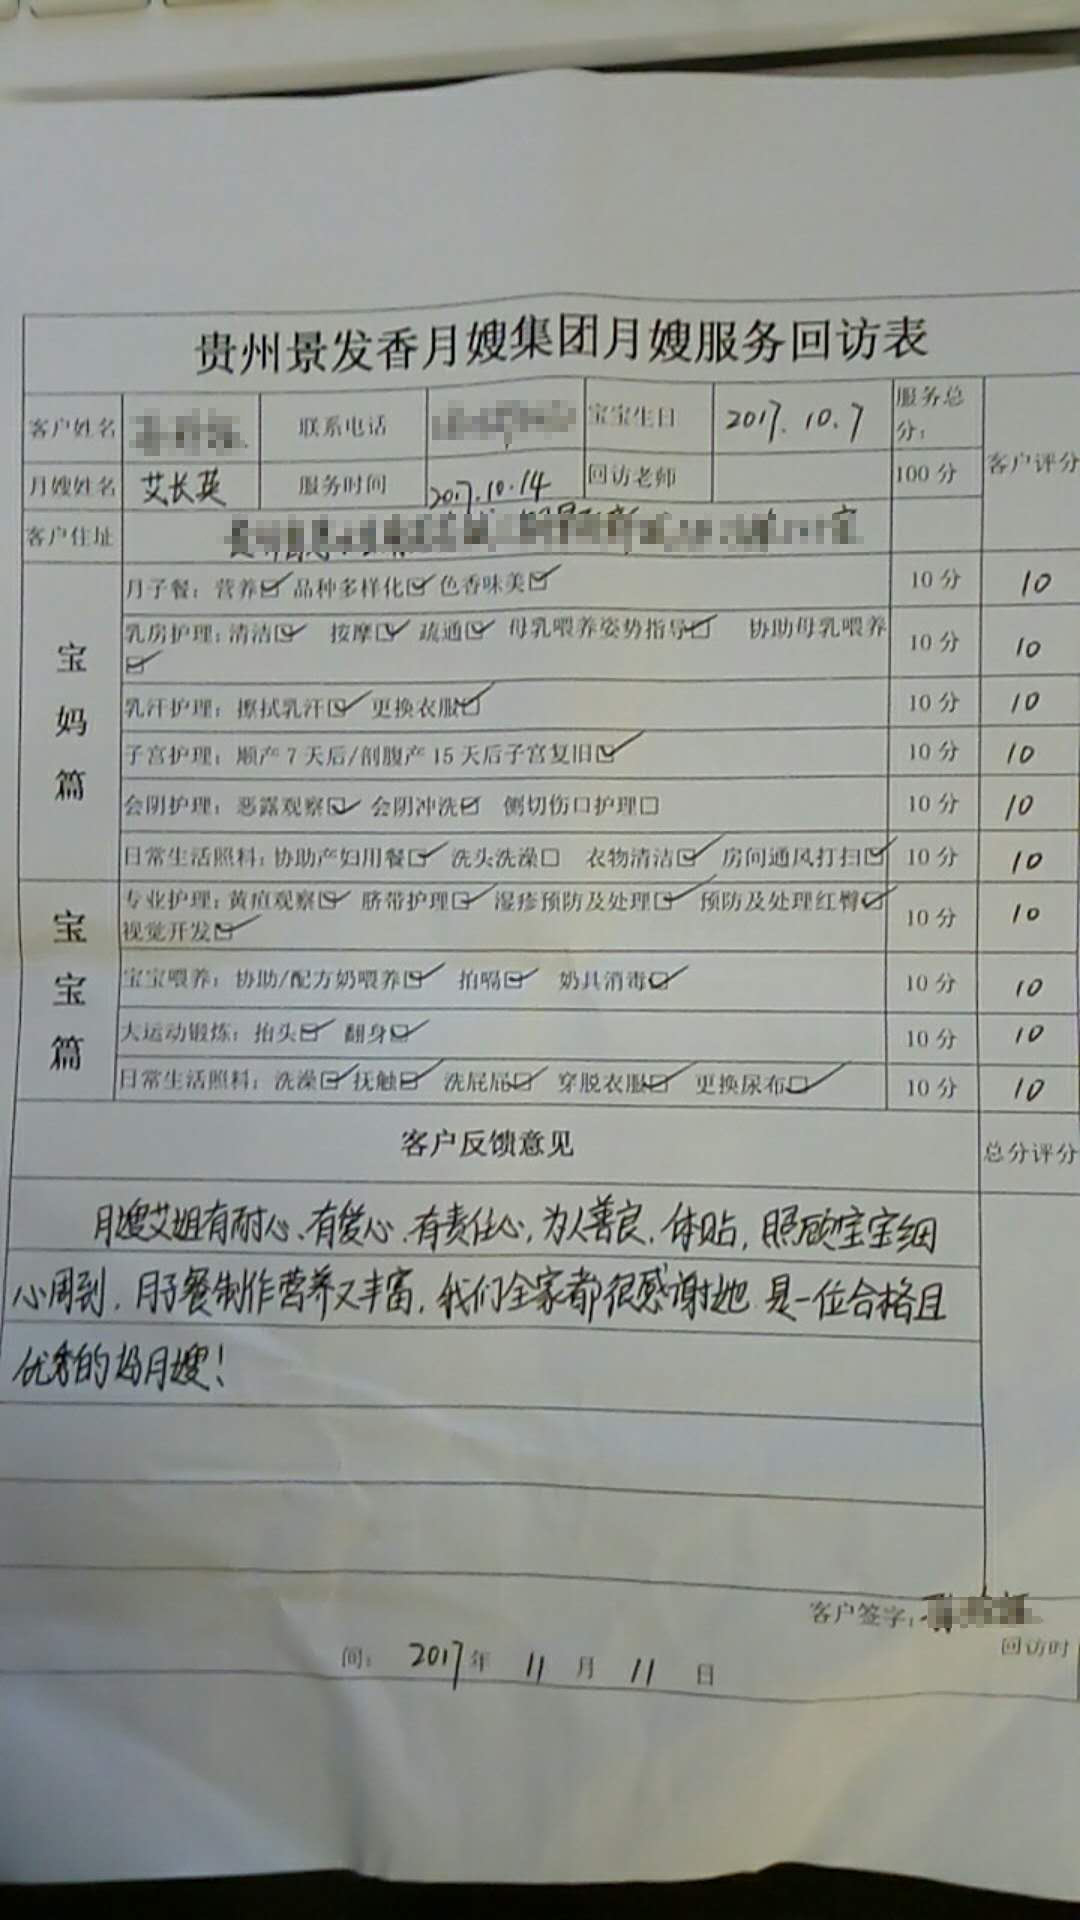 贵州景发香月嫂集团月嫂服务回访表
客户姓名 联系电话 宝宝生日 2017.10.7 服务总分: 客户评分
月嫂姓名 艾长英 服务时间 2017.10.14 回访老师 100分
客户住址
宝妈篇
月子餐:营养☑ 品种多样化☑ 色香味美☑ 10分 10
乳房护理:清洁☑ 按摩☑ 疏通☑ 母乳喂养姿势指导☑ 协助母乳喂养
☑ 10分 10
乳汗护理:擦拭乳汗☑ 更换衣服☑ 10分 10
子宫护理:顺产7天后/剖腹产15天后子宫复旧☑ 10分 10
会阴护理:恶露观察☑ 会阴冲洗☑ 侧切伤口护理□ 10分 10
日常生活照料:协助产妇用餐☑ 洗头洗澡□ 衣物清洁☑ 房间通风打扫☑ 10分 10
宝宝篇
专业护理:黄疸观察☑ 脐带护理☑ 湿疹预防及处理☑ 预防及处理红臀☑
视觉开发☑ 10分 10
宝宝喂养:协助/配方奶喂养☑ 拍嗝☑ 奶具消毒☑ 10分 10
大运动锻炼:抬头☑ 翻身☑ 10分 10
日常生活照料:洗澡☑ 抚触☑ 洗屁屁☑ 穿脱衣服☑ 更换尿布☑ 10分 10
客户反馈意见 总分评分
月嫂艾姐有耐心、有爱心、有责任心,为人善良,体贴,照顾宝宝细
心周到,月子餐制作营养又丰富,我们全家都很感谢她.是一位合格且
优秀的好月嫂!
客户签字:
回访时
间: 2017年 11月 11日